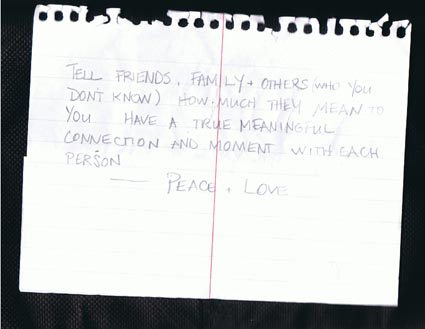 TELL FRIENDS, FAMILY + OTHERS (WHO YOU
DON'T KNOW) HOW MUCH THEY MEAN TO
YOU HAVE A TRUE MEANINGFUL
CONNECTION AND MOMENT WITH EACH
PERSON
— PEACE + LOVE